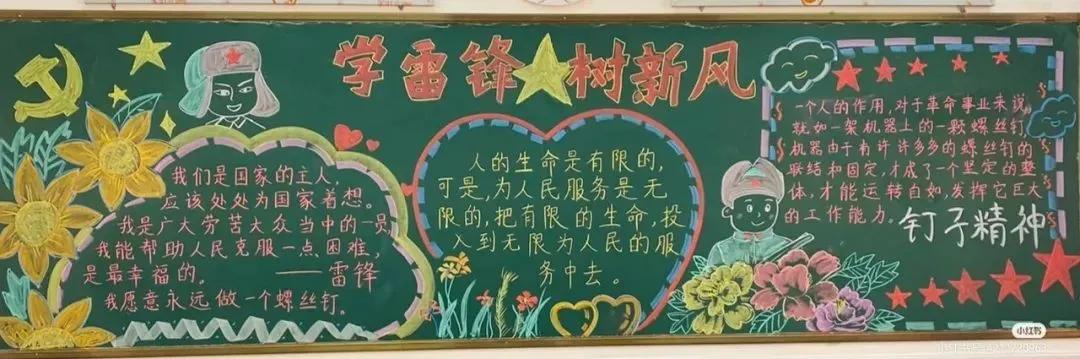 学雷锋树新风
我们是国家的主人,
应该处处为国家着想。
我是广大劳苦大众当中的一员
我能帮助人民克服一点困难,
是最幸福的。——雷锋
我愿意永远做一个螺丝钉。
人的生命是有限的,
可是,为人民服务是无
限的,把有限的生命,投
入到无限为人民的服
务中去。
一个人的作用,对于革命事业来说,
就如一架机器上的一颗螺丝钉
机器由于有许许多多的螺丝钉的
联结和固定,才成了一个坚定的整
体,才能运转自如,发挥它巨大
的工作能力。
钉子精神
小红书